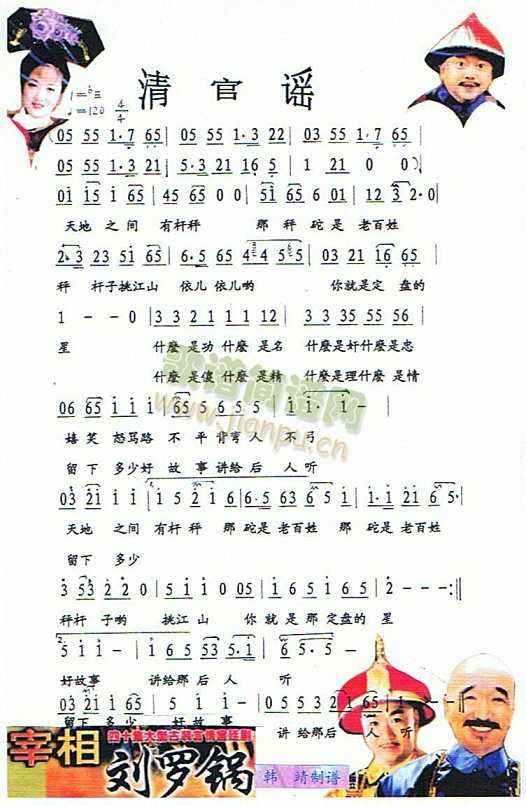 清官谣
1=♭E
♩=120 4/4
(05 55 1·7 65 | 05 55 1·3 22 | 03 55 1·7 65 |
05 55 1·3 21 | 5·3 21 16 5 | 1 21 0 0) |
01 15 1 65 | 45 65 0 0 | 51 65 6 01 | 12 3 2·0 |
天地 之间 有杆秤 那 秤 砣 是 老百姓
2·3 23 51 65 | 6·5 65 44 55 | 03 21 16 65 |
秤 杆子挑江山 依儿 依儿哟 你就是 定 盘的
1 - - 0 | 33 21 11 12 | 33 35 55 56 |
星 什麽 是功 什麽 是名 什麽是奸什麽是忠
什麽 是傻 什麽 是精 什麽是理什麽 是情
06 65 1 1 | 65 5 65 5 | 1 1· 1 - |
嬉 笑 怒骂路 不 平 背弯 人 不 弓
留 下 多少好 故 事 讲给 后 人 听
1.
03 21 1 1 | 1 5 21 6 | 56 63 6 5 1 | 1· 2 1 6 65· |
天地 之间 有杆 秤 那 砣是 老百姓 那 砣是 老百姓
留下 多少
3 53 2 2 | 0 5 1 1 0 05 | 1 6 5 1 65 | 2 - - - :||
秤杆 子哟 挑江山 你 就 是 那 定盘的 星
2.
5 1 1 - | 1 65 53 5·1 | 65· 5 - |
好故事 讲给那后 人 听
03 21 1 65 | 5 1 1 0 | 03 53 0 53 0
留下 多少 好 故事 讲 给那后 人 听
四十集大型古装古情宫廷剧
宰相
刘罗锅
韩 靖制谱
歌谱简谱网
www.jianpu.cn